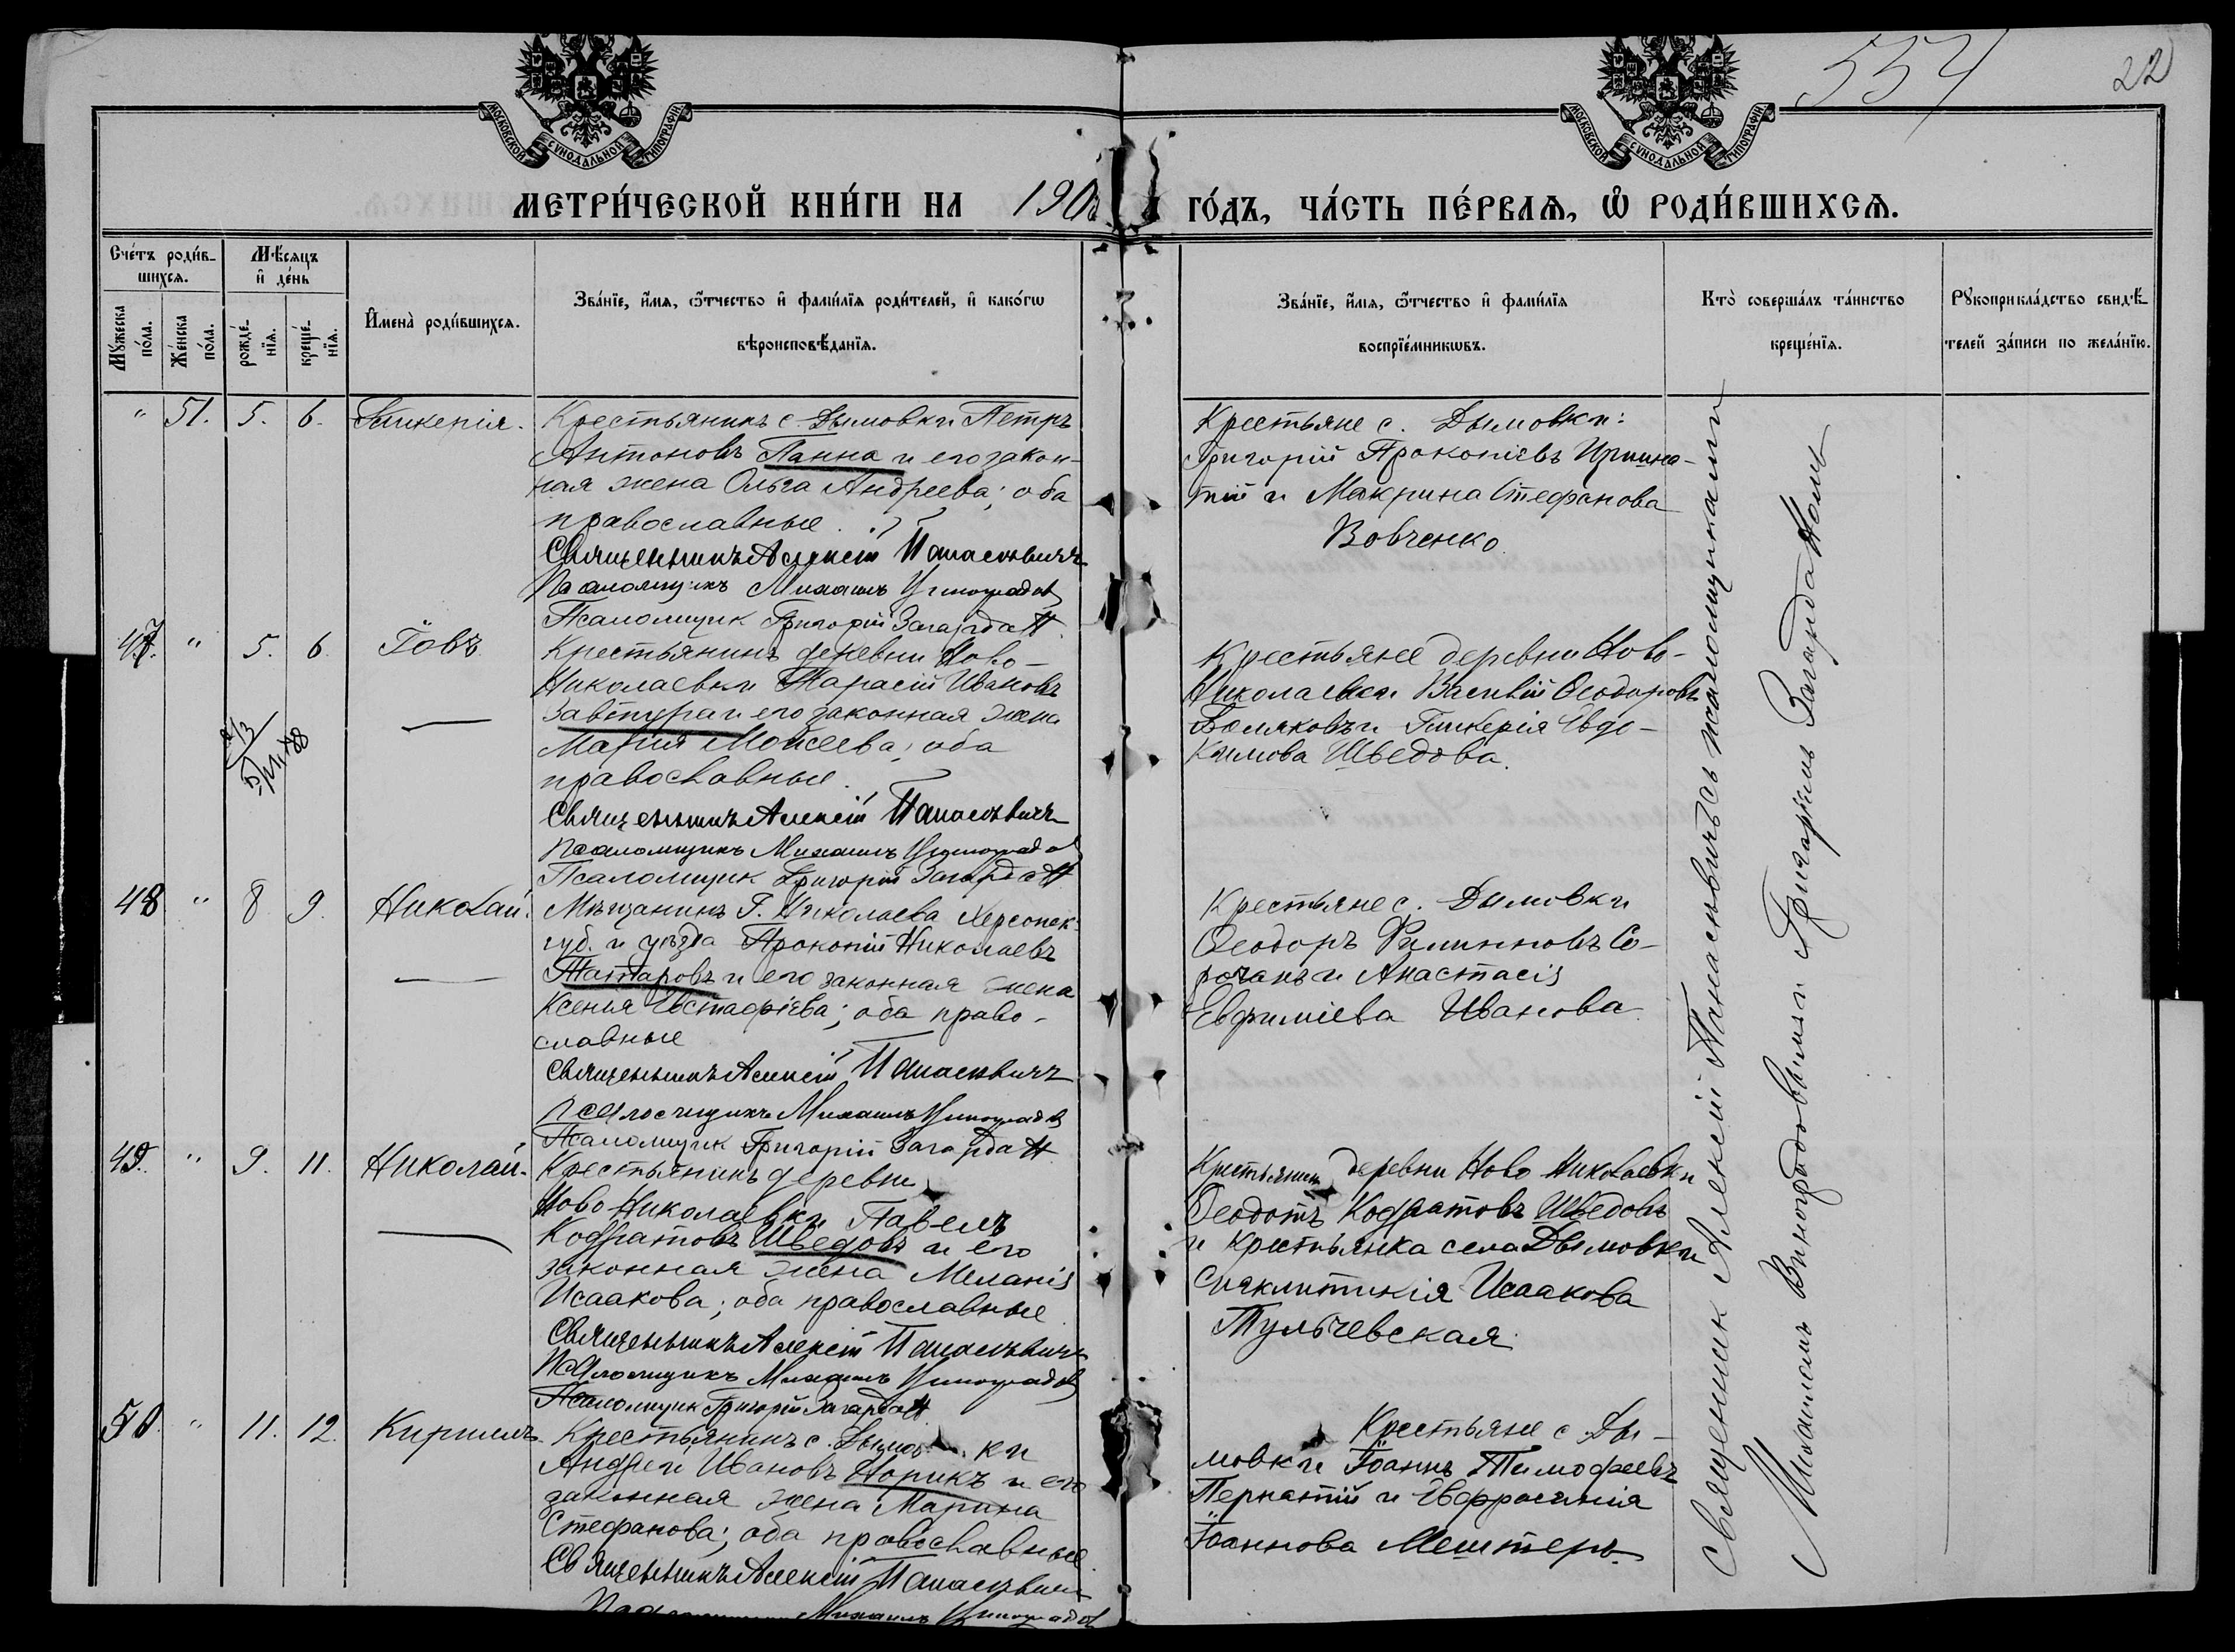 554
22
МОСКОВСКОЙ СѴНОДАЛЬНОЙ ТИПОГРАФІИ
МОСКОВСКОЙ СѴНОДАЛЬНОЙ ТИПОГРАФІИ
МЕТРИ́ЧЕСКОЙ КНИ́ГИ НА 190
ГО́ДЪ, ЧА́СТЬ ПЕ́РВАѦ, Ѡ҆ РОДИ́ВШИХСѦ.
Сче́тъ роди́в-
шихсѧ.
Мѣ́сяцъ
и҆ де́нь
Мꙋ́жеска
по́ла.
Же́нска
по́ла.
рожде́-
нїѧ.
креще́-
нїѧ.
И҆мена̀ роди́вшихсѧ.
Зва́нїе, и҆́мѧ, ѻ҆́тчество и҆ фами́лїѧ роди́телей, и҆ како́гѡ
вѣроисповѣ́данїѧ.
Зва́нїе, и҆́мѧ, ѻ҆́тчество и҆ фами́лїѧ
воспрїе́мникѡвъ.
Кто̀ соверша́лъ та́инство
креще́нїѧ.
Рꙋкоприкла́дство свидѣ́-
телей за́писи по жела́нїю.
" 51. 5. 6. Гликерія.
Крестьянинъ с. Дымовки Петръ
Антоновъ Панна и его закон-
ная жена Ольга Андреева; оба
православные.
Священникъ Алексій Панасьевичъ
Псаломщикъ Михаилъ Виноградов
Псаломщик Григорій Загарда
Крестьяне с. Дымовки:
Григорій Прокопіевъ
и Макрина Стефанова
Вовченко
47. " 5. 6. Іовъ
Крестьянинъ деревни Ново-
Николаевки Тарасій Ивановъ
Завтура и его законная жена
Марія Моисеева; оба
православные.
Священникъ Алексій Панасьевичъ
Псаломщикъ Михаилъ Виноградов
Псаломщик Григорій Загарда
Крестьяне деревни Ново-
Николаевки Василій Ѳеодоровъ
Поляковъ и Гликерія Евдо-
кимова Шведова.
48 " 8 9. Николай.
Мѣщанинъ Г. Николаева Херсонск.
губ. и уѣзда Прокопій Николаевъ
Татаровъ и его законная жена
Ксенія Евстафіева; оба право-
славные
Священникъ Алексій Панасьевичъ
Псаломщикъ Михаилъ Виноградов
Псаломщик Григорій Загарда
Крестьяне с. Дымовки
Ѳеодоръ Филипповъ Со-
рочанъ и Анастасія
Евфиміева Иванова.
49. " 9. 11. Николай.
Крестьянинъ деревни
Ново Николаевки Павелъ
Кодратовъ Шведовъ и его
законная жена Меланія
Исаакова; оба православные
Священникъ Алексій Панасьевичъ
Псаломщикъ Михаилъ Виноградов
Псаломщик Григорій Загарда
Крестьянин деревни Ново Николаевки
Ѳеодотъ Кодратовъ Шведовъ
и крестьянка села Дымовки
Синклитикія Исаакова
Тульчевская.
50. " 11. 12. Кириллъ.
Крестьянинъ с. Дымовки
Андрей Ивановъ Норикъ и его
законная жена Марина
Стефанова; оба православные
Священникъ Алексій Панасьевичъ
Михаилъ Виноградов
Крестьяне с. Ды-
мовки Іоаннъ Тимофеевъ
Пернатій и Евфросинія
Іоаннова Мештеръ.
Священник Алексій Панасьевичъ съ псаломщиками
Михаиломъ Виноградовымъ и Григоріемъ Загарда